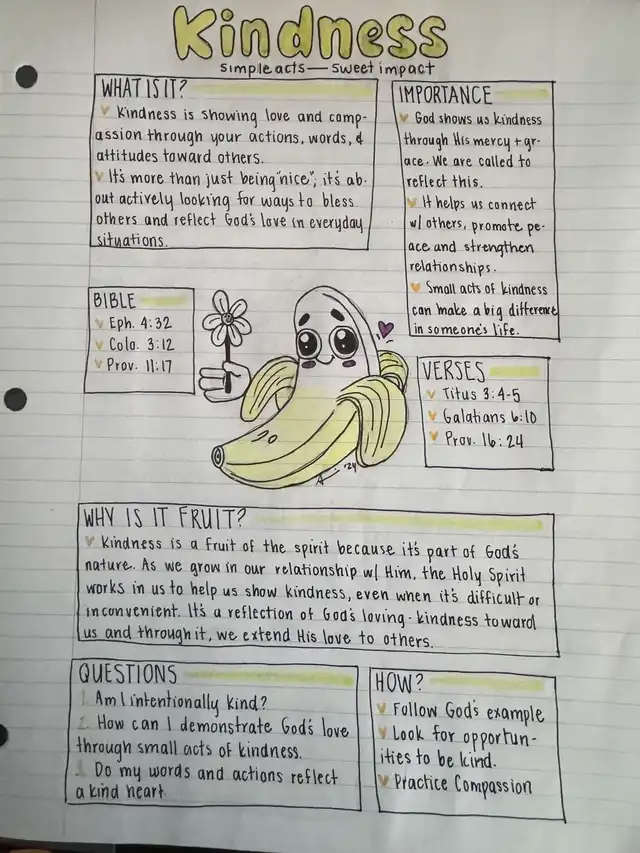 Kindness
simple acts — sweet impact
WHAT IS IT?
Kindness is showing love and comp-
assion through your actions, words, &
attitudes toward others.
It's more than just being "nice"; it's ab-
out actively looking for ways to bless
others and reflect God's love in everyday
situations.
IMPORTANCE
God shows us kindness
through His mercy + gr-
ace. We are called to
reflect this.
It helps us connect
w/ others, promote pe-
ace and strengthen
relationships.
Small acts of kindness
can make a big difference
in someone's life.
BIBLE
Eph. 4:32
Colo. 3:12
Prov. 11:17
VERSES
Titus 3:4-5
Galatians 6:10
Prov. 16:24
'24
WHY IS IT FRUIT?
Kindness is a fruit of the spirit because it's part of God's
nature. As we grow in our relationship w/ Him, the Holy Spirit
works in us to help us show kindness, even when it's difficult or
inconvenient. It's a reflection of God's loving-kindness toward
us and through it, we extend His love to others.
QUESTIONS
1. Am I intentionally kind?
2. How can I demonstrate God's love
through small acts of kindness.
3. Do my words and actions reflect
a kind heart.
HOW?
Follow God's example
Look for opportun-
ities to be kind.
Practice Compassion